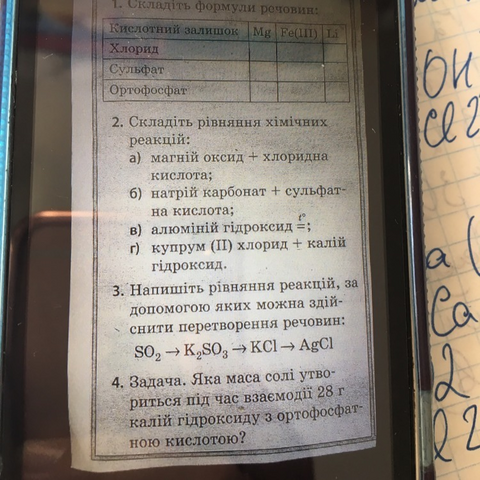 1. Складіть формули речовин:
Кислотний залишок Mg Fe(III) Li
Хлорид
Сульфат
Ортофосфат
2. Складіть рівняння хімічних
реакцій:
а) магній оксид + хлоридна
кислота;
б) натрій карбонат + сульфат-
на кислота;
в) алюміній гідроксид t° =;
г) купрум (II) хлорид + калій
гідроксид.
3. Напишіть рівняння реакцій, за
допомогою яких можна здій-
снити перетворення речовин:
SO₂ → K₂SO₃ → KCl → AgCl
4. Задача. Яка маса солі утво-
риться під час взаємодії 28 г
калій гідроксиду з ортофосфат-
ною кислотою?
OH
Cl 2
a (
Ca
2